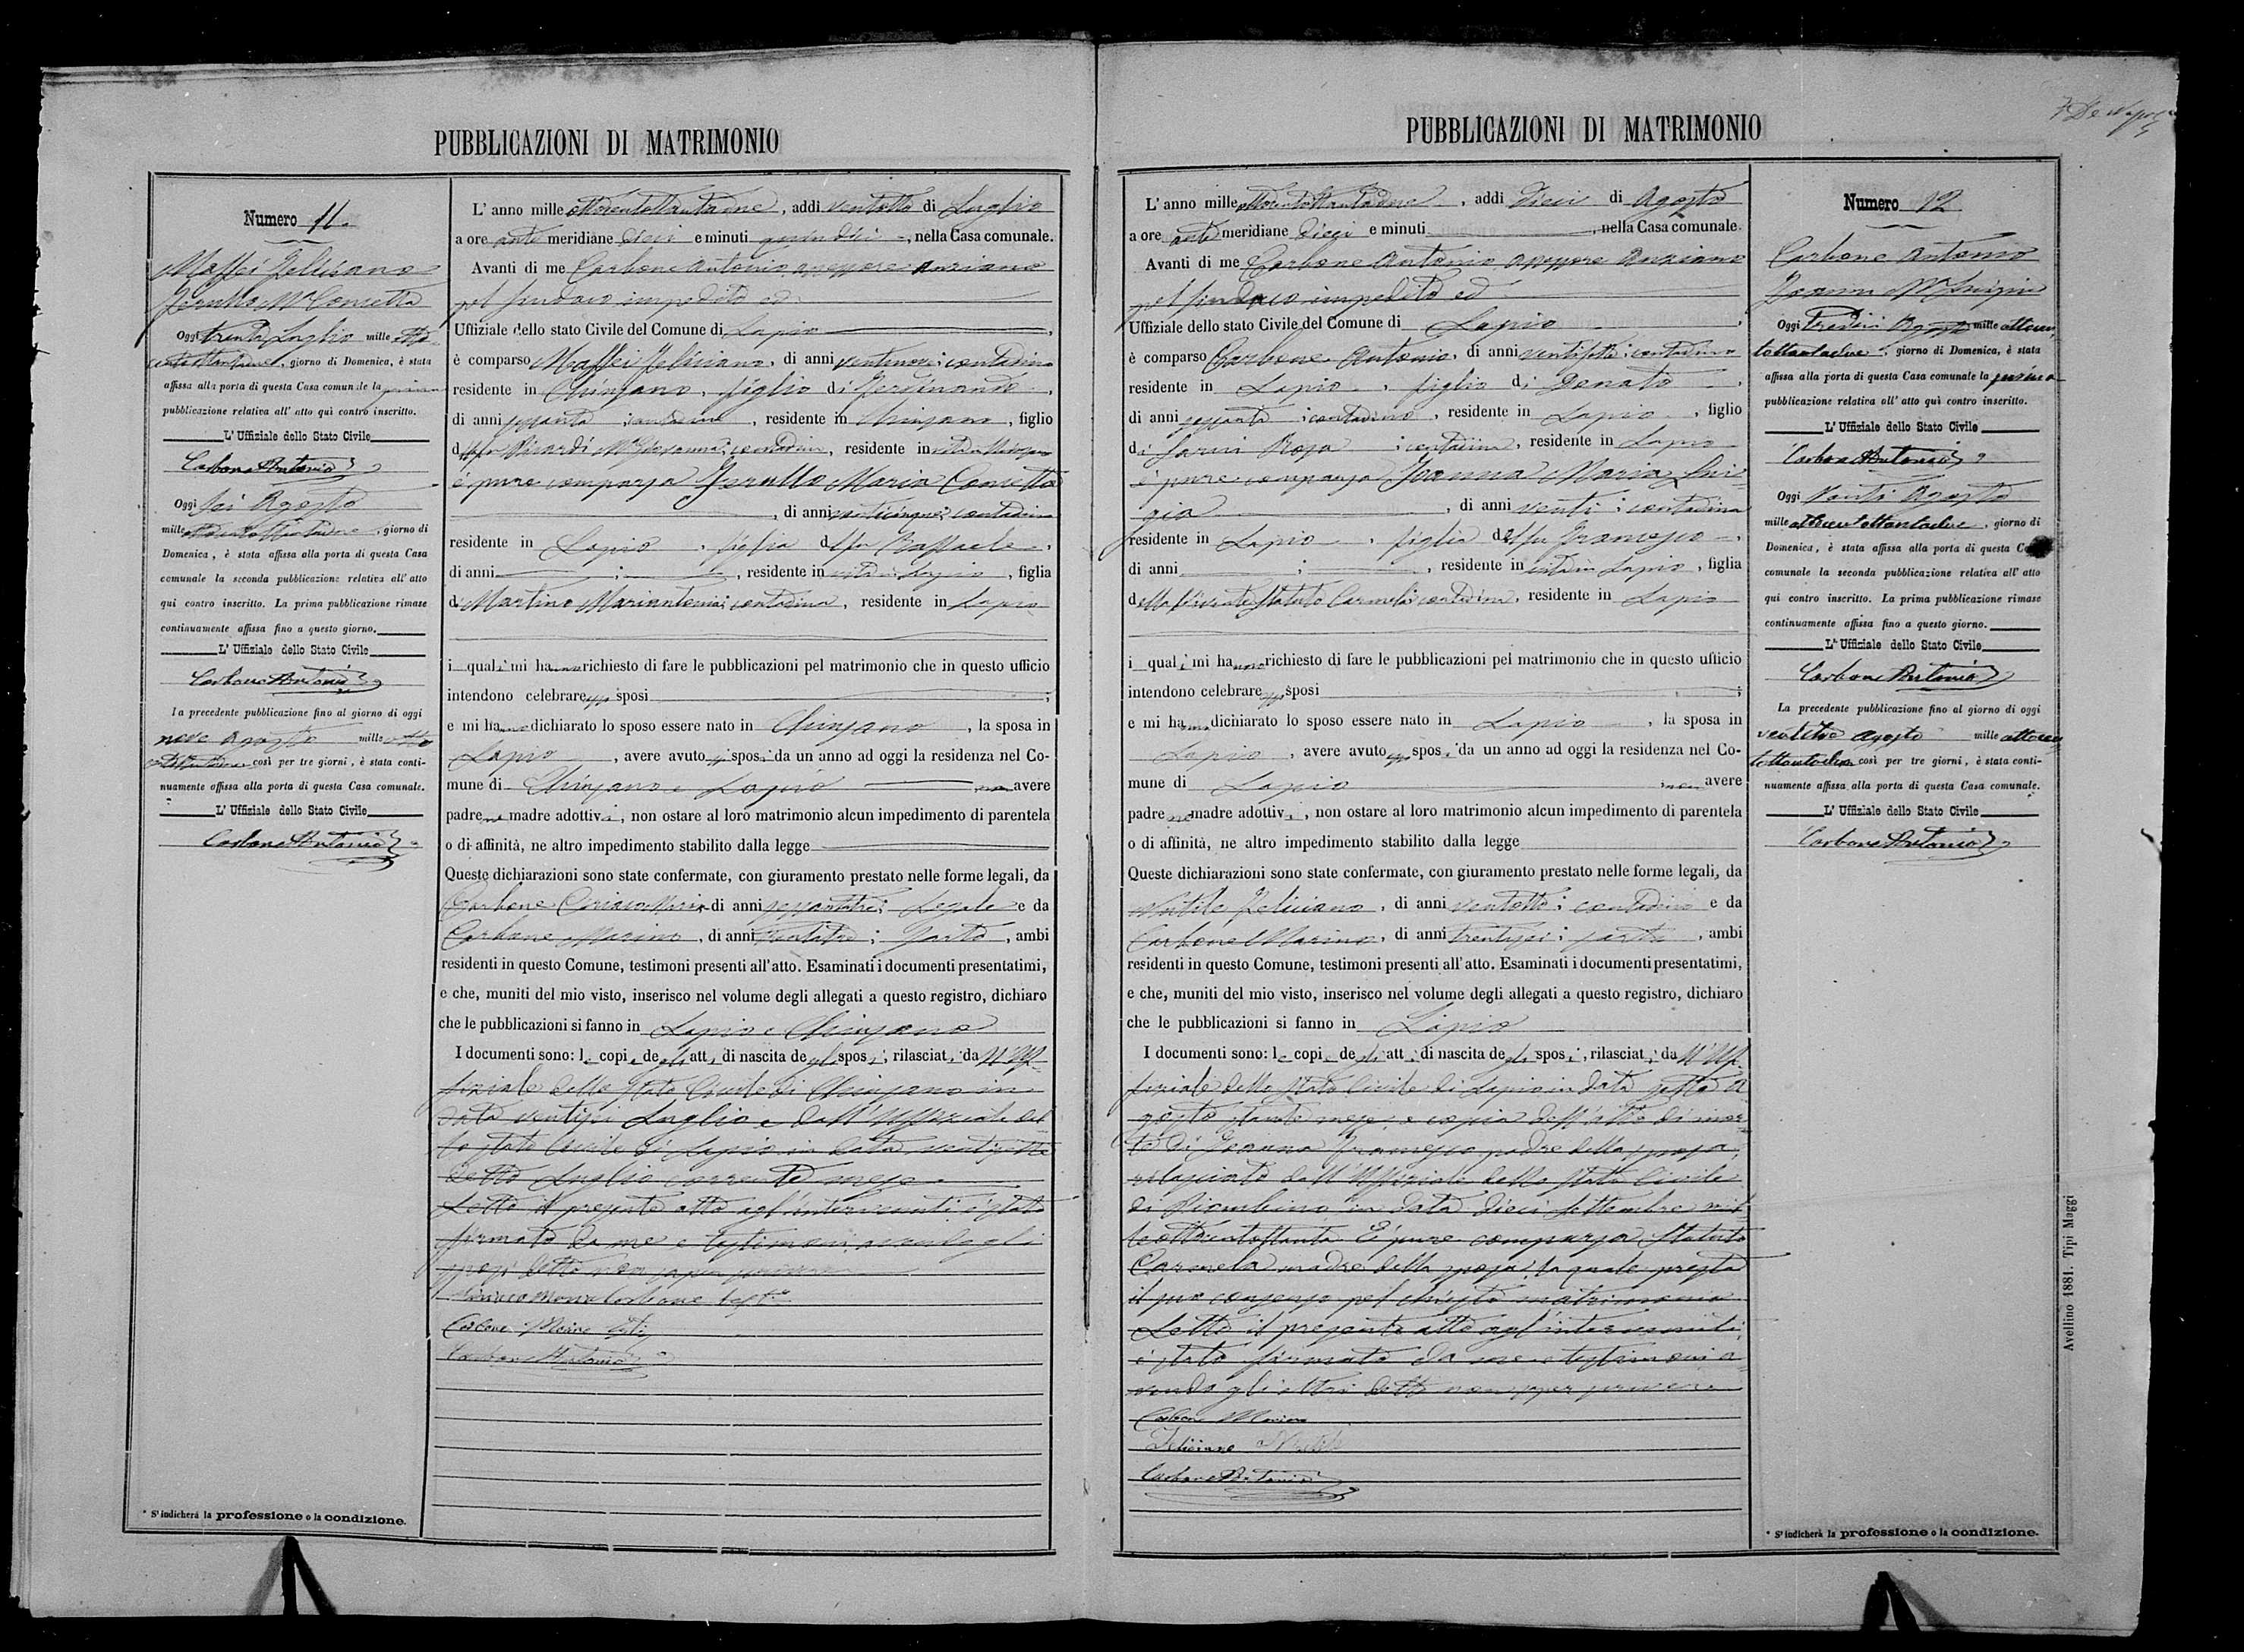 PUBBLICAZIONI DI MATRIMONIO
Numero 11.
Maffei Feliciano
M.a Concetta
Oggi trenta Luglio mille otto
cento ottantadue, giorno di Domenica, è stata
affissa alla porta di questa Casa comunale la prima
pubblicazione relativa all' atto quì contro inscritto.
L' Uffiziale dello Stato Civile
Carbone Antonio
Oggi sei Agosto
mille ottocentottantadue, giorno di
Domenica, è stata affissa alla porta di questa Casa
comunale la seconda pubblicazione relativa all' atto
qui contro inscritto. La prima pubblicazione rimase
continuamente affissa fino a questo giorno.
L' Uffiziale dello Stato Civile
Carbone Antonio
la precedente pubblicazione fino al giorno di oggi
nove Agosto mille otto
centottantadue così per tre giorni, è stata conti-
nuamente affissa alla porta di questa Casa comunale.
L' Uffiziale dello Stato Civile
Carbone Antonio
* S'indicherà la professione o la condizione.
L' anno mille ottocentottantadue, addi ventotto di Luglio
a ore anti meridiane dieci e minuti quindici, nella Casa comunale.
Avanti di me Carbone Antonio assessore anziano
pel sindaco impedito ed
Uffiziale dello stato Civile del Comune di Lapio,
è comparso Maffei Feliciano, di anni ventinove; contadino
residente in Chiusano, figlio di Ferdinando,
di anni sessanta; contadino, residente in Chiusano, figlio
della fu Picardi M.a Giovanna; contadina, residente in vita in Chiusano
è pure comparsa Maria Concetta
, di anni venticinque; contadina
residente in Lapio, figlia del fu Raffaele,
di anni ; , residente in vita in Lapio, figlia
di Martino Mariantonia; contadina, residente in Lapio
i quali mi hanno richiesto di fare le pubblicazioni pel matrimonio che in questo ufficio
intendono celebrare essi sposi ;
e mi hanno dichiarato lo sposo essere nato in Chiusano, la sposa in
Lapio, avere avuto gli sposi da un anno ad oggi la residenza nel Co-
mune di Chiusano e Lapio non avere
padre ne madre adottivi, non ostare al loro matrimonio alcun impedimento di parentela
o di affinità, ne altro impedimento stabilito dalla legge
Queste dichiarazioni sono state confermate, con giuramento prestato nelle forme legali, da
Carbone Ciriaco Maria di anni sessantatre; Legale e da
Carbone Marino, di anni trentatre; sarto, ambi
residenti in questo Comune, testimoni presenti all'atto. Esaminati i documenti presentatimi,
e che, muniti del mio visto, inserisco nel volume degli allegati a questo registro, dichiaro
che le pubblicazioni si fanno in Lapio e Chiusano
I documenti sono: le copie degli atti di nascita degli sposi, rilasciati da ll' Uf-
fiziale dello Stato Civile di Chiusano in
data ventisei Luglio e dall' Uffiziale del
lo stato Civile di Lapio in data ventisette
detto Luglio corrente mese.
Letto il presente atto agl'intervenuti è stato
firmato da me e testimoni avendo gli
sposi detto non saper scrivere
Ciriaco Maria Carbone test.e
Carbone Marino test.
Carbone Antonio
PUBBLICAZIONI DI MATRIMONIO
L' anno mille ottocentottantadue, addi dieci di Agosto
a ore anti meridiane dieci e minuti , nella Casa comunale.
Avanti di me Carbone Antonio assessore Anziano
pel sindaco impedito ed
Uffiziale dello stato Civile del Comune di Lapio,
è comparso Carbone Antonio, di anni ventisette; contadino
residente in Lapio, figlio di Donato,
di anni sessanta; contadino, residente in Lapio, figlio
di Rosa; contadina, residente in Lapio
è pure comparsa Joanna Maria Lui-
gia, di anni venti; contadina
residente in Lapio, figlia del fu Francesco,
di anni ; , residente in vita in Lapio, figlia
della vivente Statuto Carmela; contadina, residente in Lapio
i quali mi hanno richiesto di fare le pubblicazioni pel matrimonio che in questo ufficio
intendono celebrare essi sposi ;
e mi hanno dichiarato lo sposo essere nato in Lapio, la sposa in
Lapio, avere avuto gli sposi da un anno ad oggi la residenza nel Co-
mune di Lapio; non avere
padre ne madre adottivi, non ostare al loro matrimonio alcun impedimento di parentela
o di affinità, ne altro impedimento stabilito dalla legge
Queste dichiarazioni sono state confermate, con giuramento prestato nelle forme legali, da
Feliciano, di anni ventotto; contadino e da
Carbone Marino, di anni trentasei; sarto, ambi
residenti in questo Comune, testimoni presenti all'atto. Esaminati i documenti presentatimi,
e che, muniti del mio visto, inserisco nel volume degli allegati a questo registro, dichiaro
che le pubblicazioni si fanno in Lapio
I documenti sono: le copie degli atti di nascita degli sposi, rilasciati da ll' Uf-
fiziale dello stato Civile di Lapio in data sette A
gosto stante mese, e copia dell'atto di mor-
te di Joanna Francesco padre della sposa,
rilasciato dall' Uffiziale dello Stato Civile
di Piombino in data dieci Settembre mil-
le ottocentottanta. È pure comparsa Statuto
Carmela madre della sposa, la quale presta
il suo consenso pel chiesto matrimonio
Letto il presente atto agl'intervenuti,
è stato firmato da me e testimoni a-
vendo gli altri detto non saper scrivere
Carbone Marino
Feliciano
Carbone Antonio
Numero 12
Carbone Antonio
Joanna M.a Luigia
Oggi Tredici Agosto mille ottocen
tottantadue, giorno di Domenica, è stata
affissa alla porta di questa Casa comunale la prima
pubblicazione relativa all' atto quì contro inscritto.
L' Uffiziale dello Stato Civile
Carbone Antonio
Oggi Venti Agosto
mille ottocentottantadue, giorno di
Domenica, è stata affissa alla porta di questa Casa
comunale la seconda pubblicazione relativa all' atto
qui contro inscritto. La prima pubblicazione rimase
continuamente affissa fino a questo giorno.
L' Uffiziale dello Stato Civile
Carbone Antonio
La precedente pubblicazione fino al giorno di oggi
ventitre Agosto mille ottocen
tottantadue così per tre giorni, è stata conti-
nuamente affissa alla porta di questa Casa comunale.
L' Uffiziale dello Stato Civile
Carbone Antonio
* S'indicherà la professione o la condizione.
Avellino 1881. Tipi Maggi